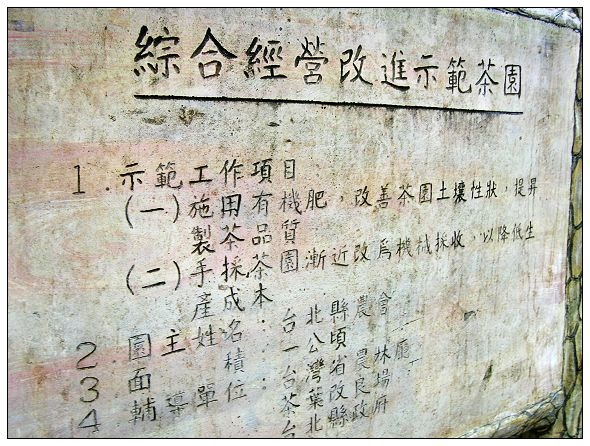 綜合經營改進示範茶園
1.示範工作項目
(一)施用有機肥,改善茶園土壤性狀,提昇
製茶品質
(二)手採茶園漸近改為機械採收,以降低生
產成本
2 園主姓名:台北縣農會
3 面積:一公頃
4 輔導單位:台灣省農林廳
茶葉改良場
台北縣政府